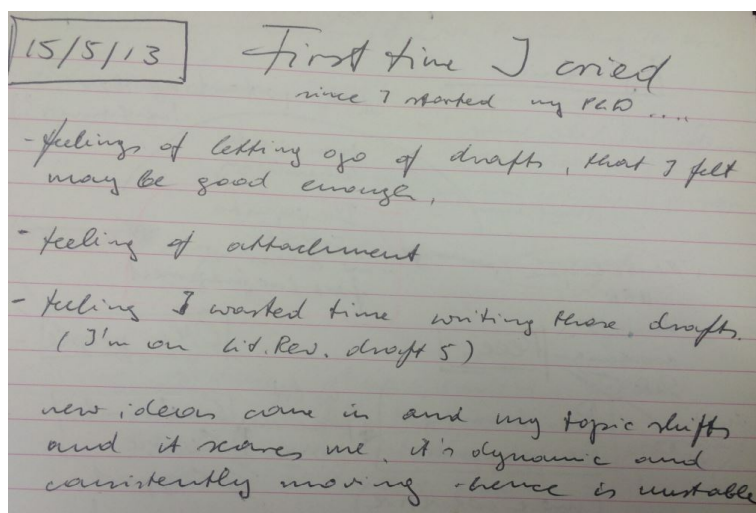 15/5/13
First time I cried
since I started my PhD ....
- feelings of letting ogo of drafts, that I felt
may be good enough,
- feeling of attachment
- feeling I wasted time writing those drafts.
(I'm on Lit. Rev. draft 5)
new ideas come in and my topic shifts
and it scares me. it's dynamic and
consistently moving - hence is unstable